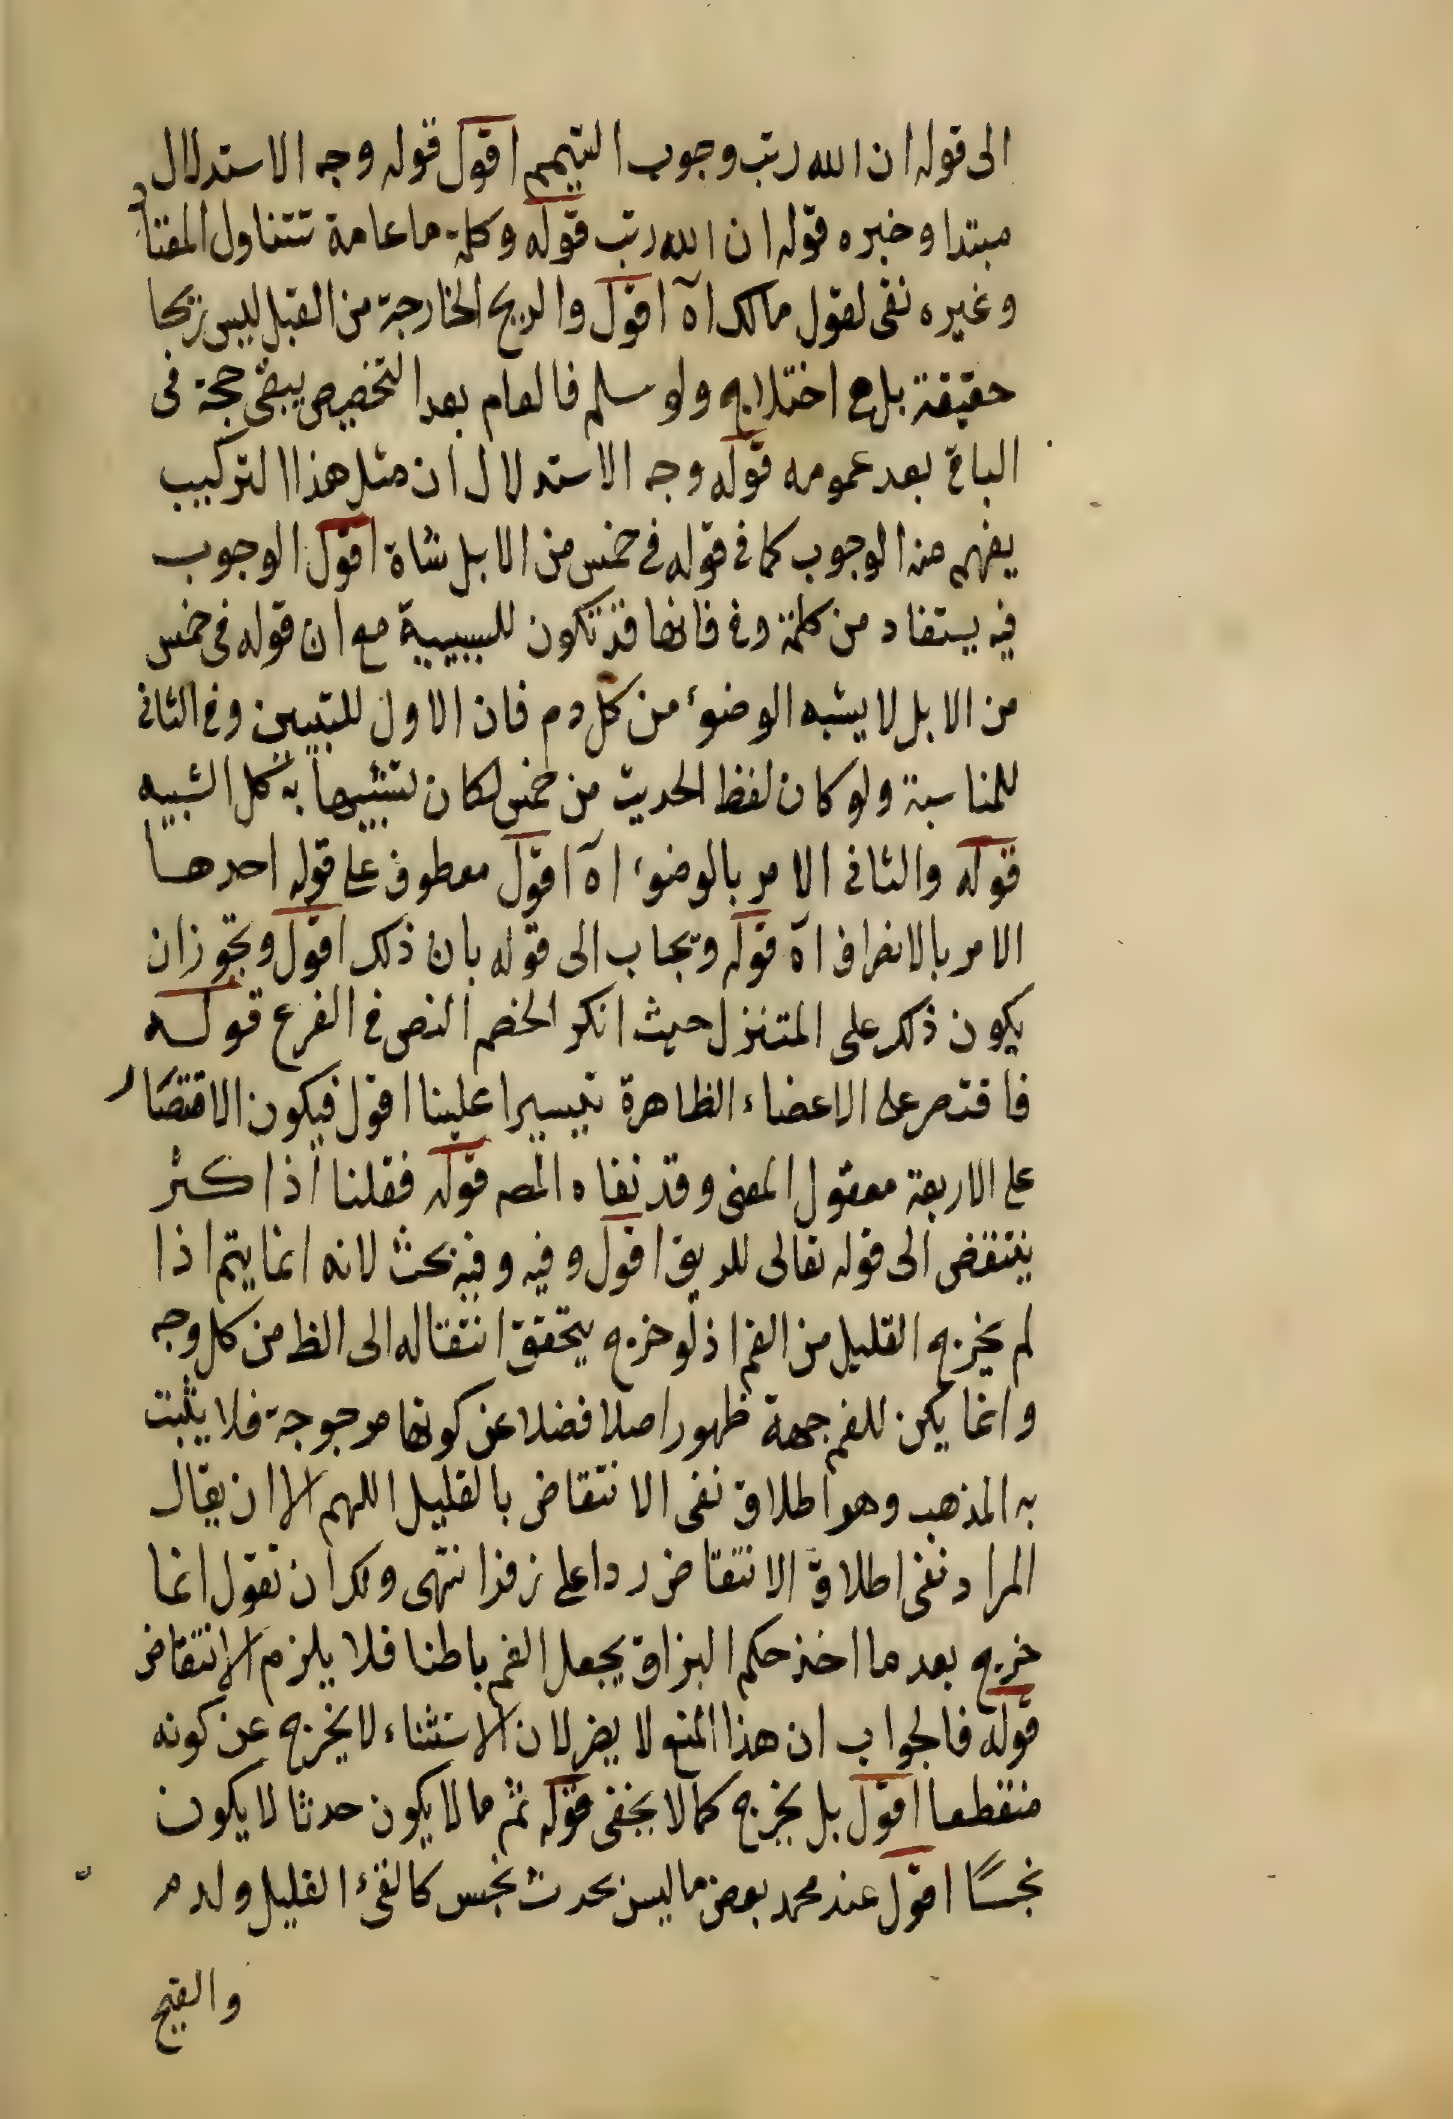 الى قوله ان الله رتب وجوب التيمم اقول قوله وجه الاستدلال
مبتدا وخبره قوله ان الله رتب قوله وكلمة ما عامة تتناول المعتاد
وغيره نفى لقول مالك اه اقول والريح الخارجة من القبل ليس ريحا
حقيقة بل هو اختلاج ولو سلم فالعام بعد التخصيص يبقى حجة فى
الباقى بعد عمومه قوله وجه الاستدلال ان مثل هذا التركيب
يفهم منه الوجوب كما فى قوله فى خمس من الابل شاة اقول الوجوب
فيه يستفاد من كلمة فى فانها قد تكون للسببية مع ان قوله فى خمس
من الابل لا يشبه الوضوء من كل دم فان الاول للتبيين وفى الثانى
للمناسبة ولو كان لفظ الحديث من خمس لكان تشبيها به كل الشبيه
قوله والثانى الامر بالوضوء اه اقول معطوف على قوله احدهما
الامر بالانصراف اه قوله ويجاب الى قوله بان ذلك اقول ويجوز ان
يكون ذلك على المتنزل حيث انكر الخصم النص فى الفرع قوله
فاقتصر على الاعضاء الظاهرة تيسيرا علينا اقول فيكون الاقتصار
على الاربعة معقول المعنى وقد نفاه المصه قوله فقلنا اذا كثر
ينتقض الى قوله تعالى للريق اقول وفيه وفيه بحث لانه انما يتم اذا
لم يخرج القليل من الفم اذ لو خرج يتحقق انتقاله الى الظ من كل وجه
وانما يكن للفم جهة ظهور اصلا فضلا عن كونها مرجوجة فلا يثبت
به المذهب وهو اطلاق نفى الانتقاض بالقليل اللهم الا ان يقال
المراد نفى اطلاق الانتقاض ردا على زفر انتهى ولك ان تقول انما
خرج بعد ما اخذ حكم البزاق يجعل الفم باطنا فلا يلزم الانتقاض
قوله فالجواب ان هذا المنع لا يضر لان الاستثناء لا يخرج عن كونه
منقطعا اقول بل يخرج كما لا يخفى قوله ثم ما لا يكون حدثا لا يكون
نجسًا اقول عند محمد بعض ما ليس بحدث نجس كالقئ القليل ولدم
والقيح